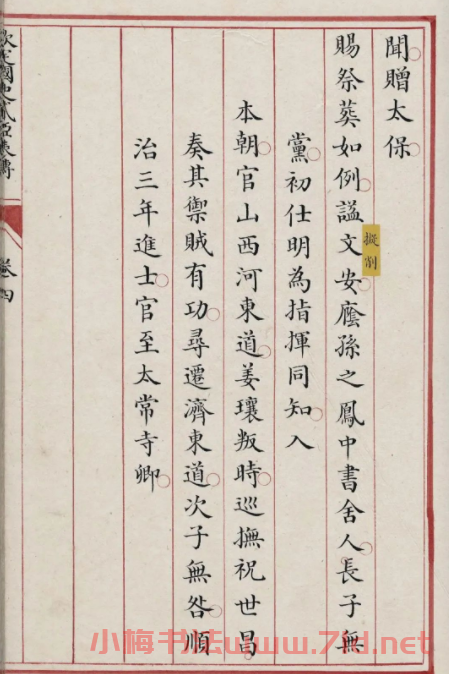 聞贈太保
賜祭葬如例諡文安廕孫之鳳中書舍人長子無
擬削
黨初仕明為指揮同知入
本朝官山西河東道姜瓖叛時巡撫祝世昌
奏其禦賊有功尋遷濟東道次子無咎順
治三年進士官至太常寺卿
欽定國史貳臣表傳
卷四
小梅书法